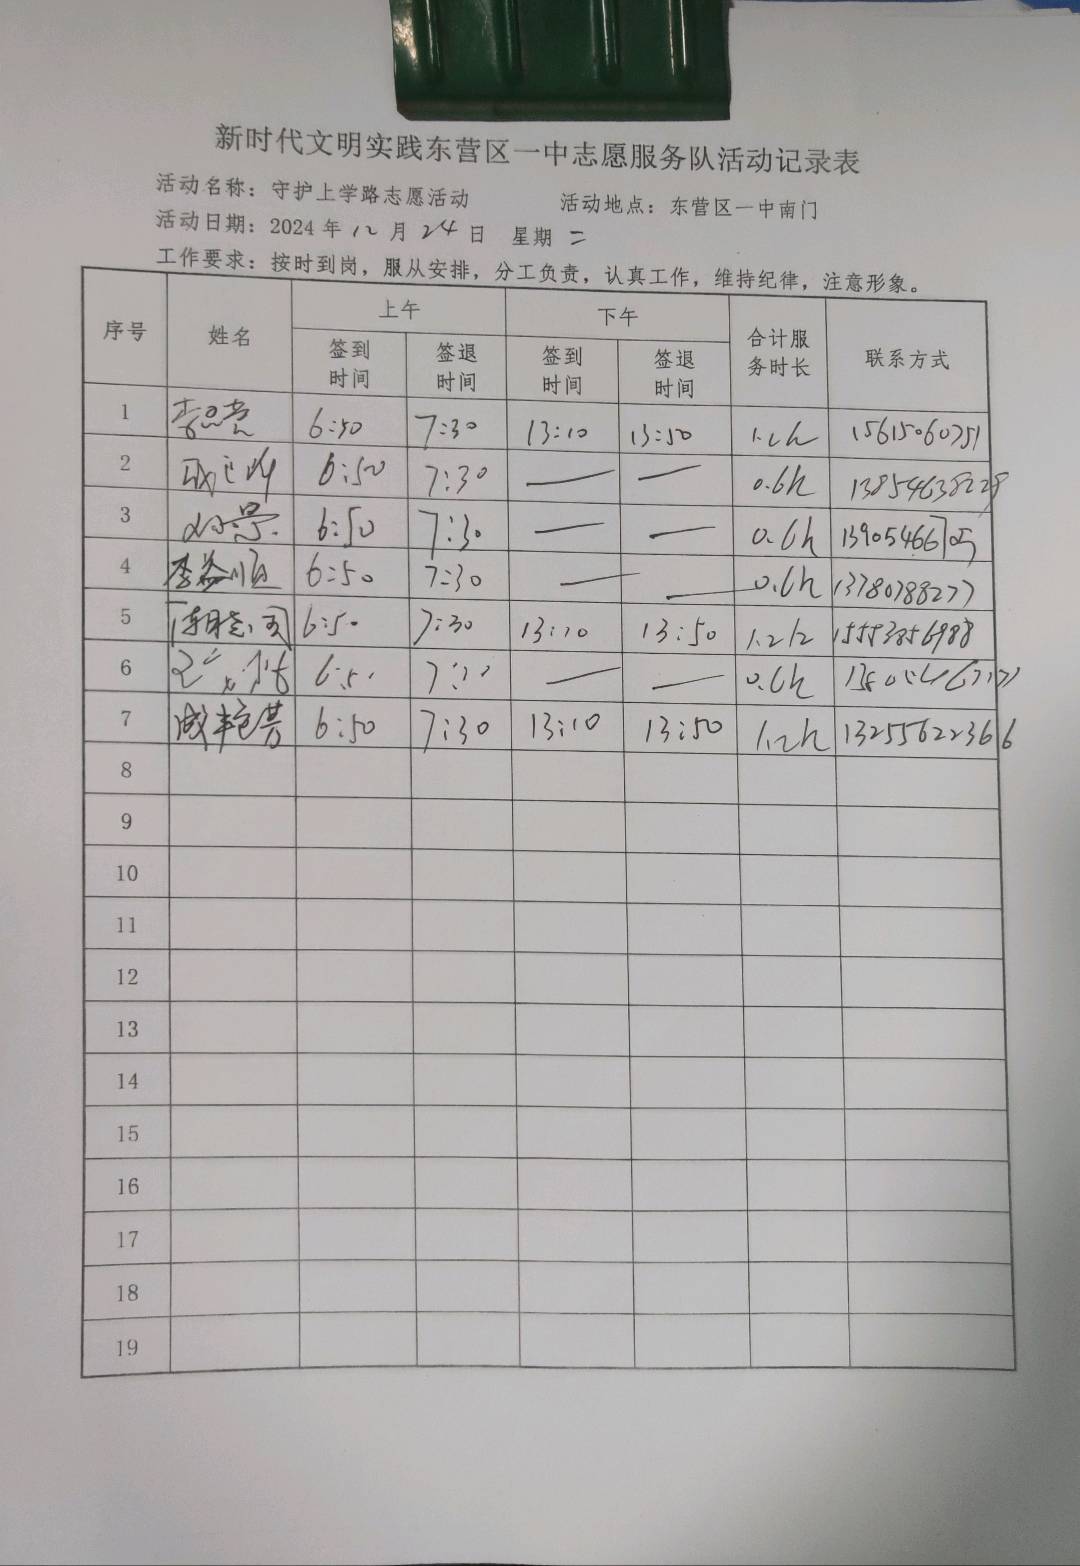 新时代文明实践东营区一中志愿服务队活动记录表
活动名称：守护上学路志愿活动 活动地点：东营区一中南门
活动日期：2024年12月24日 星期二
工作要求：按时到岗，服从安排，分工负责，认真工作，维持纪律，注意形象。
序号 姓名 上午 下午 合计服务时长 联系方式
签到时间 签退时间 签到时间 签退时间
1 6:50 7:30 13:10 13:50 1.2h 15615060751
2 6:50 7:30 — — 0.6h 13854638229
3 6:50 7:30 — — 0.6h
4 李益顺 6:50 7:30 — — 0.6h 13780788277
5 6:50 7:30 13:10 13:50 1.2h 15553856988
6 6:50 7:30 — — 0.6h
7 6:50 7:30 13:10 13:50 1.2h 13255622366
8
9
10
11
12
13
14
15
16
17
18
19